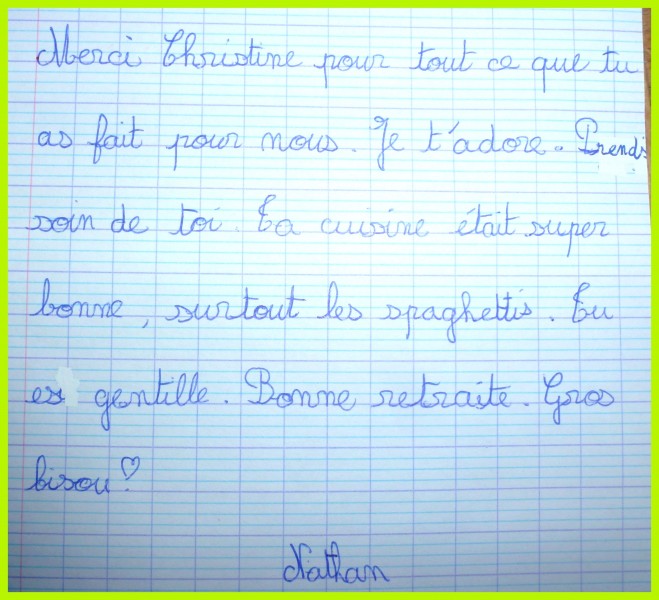 Merci Christine pour tout ce que tu
as fait pour nous. Je t'adore. Prends
soin de toi. Ta cuisine était super
bonne, surtout les spaghettis. Tu
es gentille. Bonne retraite. Gros
bisou ♡
Nathan